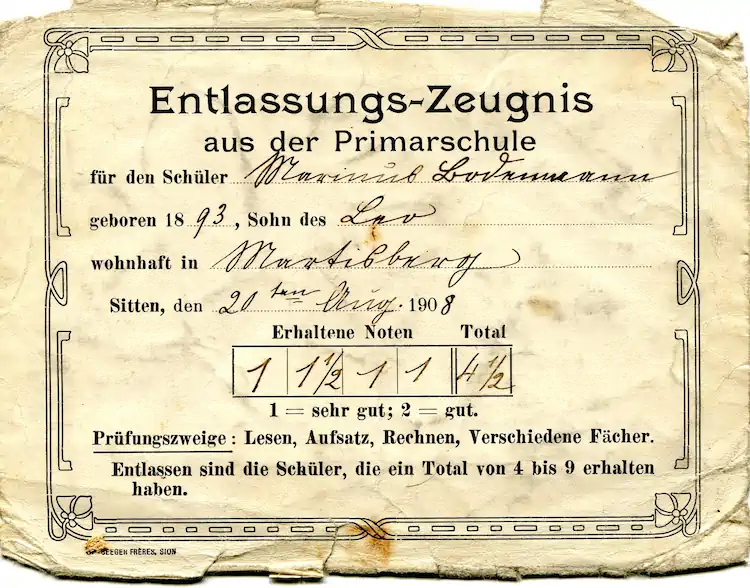 Entlassungs-Zeugnis
aus der Primarschule
für den Schüler Marinus Bodenmann
geboren 18 93, Sohn des Leo
wohnhaft in Martisberg
Sitten, den 20ten Aug. 1908
Erhaltene Noten Total
1 1 1/2 1 1 4 1/2
1 = sehr gut; 2 = gut.
Prüfungszweige: Lesen, Aufsatz, Rechnen, Verschiedene Fächer.
Entlassen sind die Schüler, die ein Total von 4 bis 9 erhalten
haben.
SEEGER FRÈRES, SION